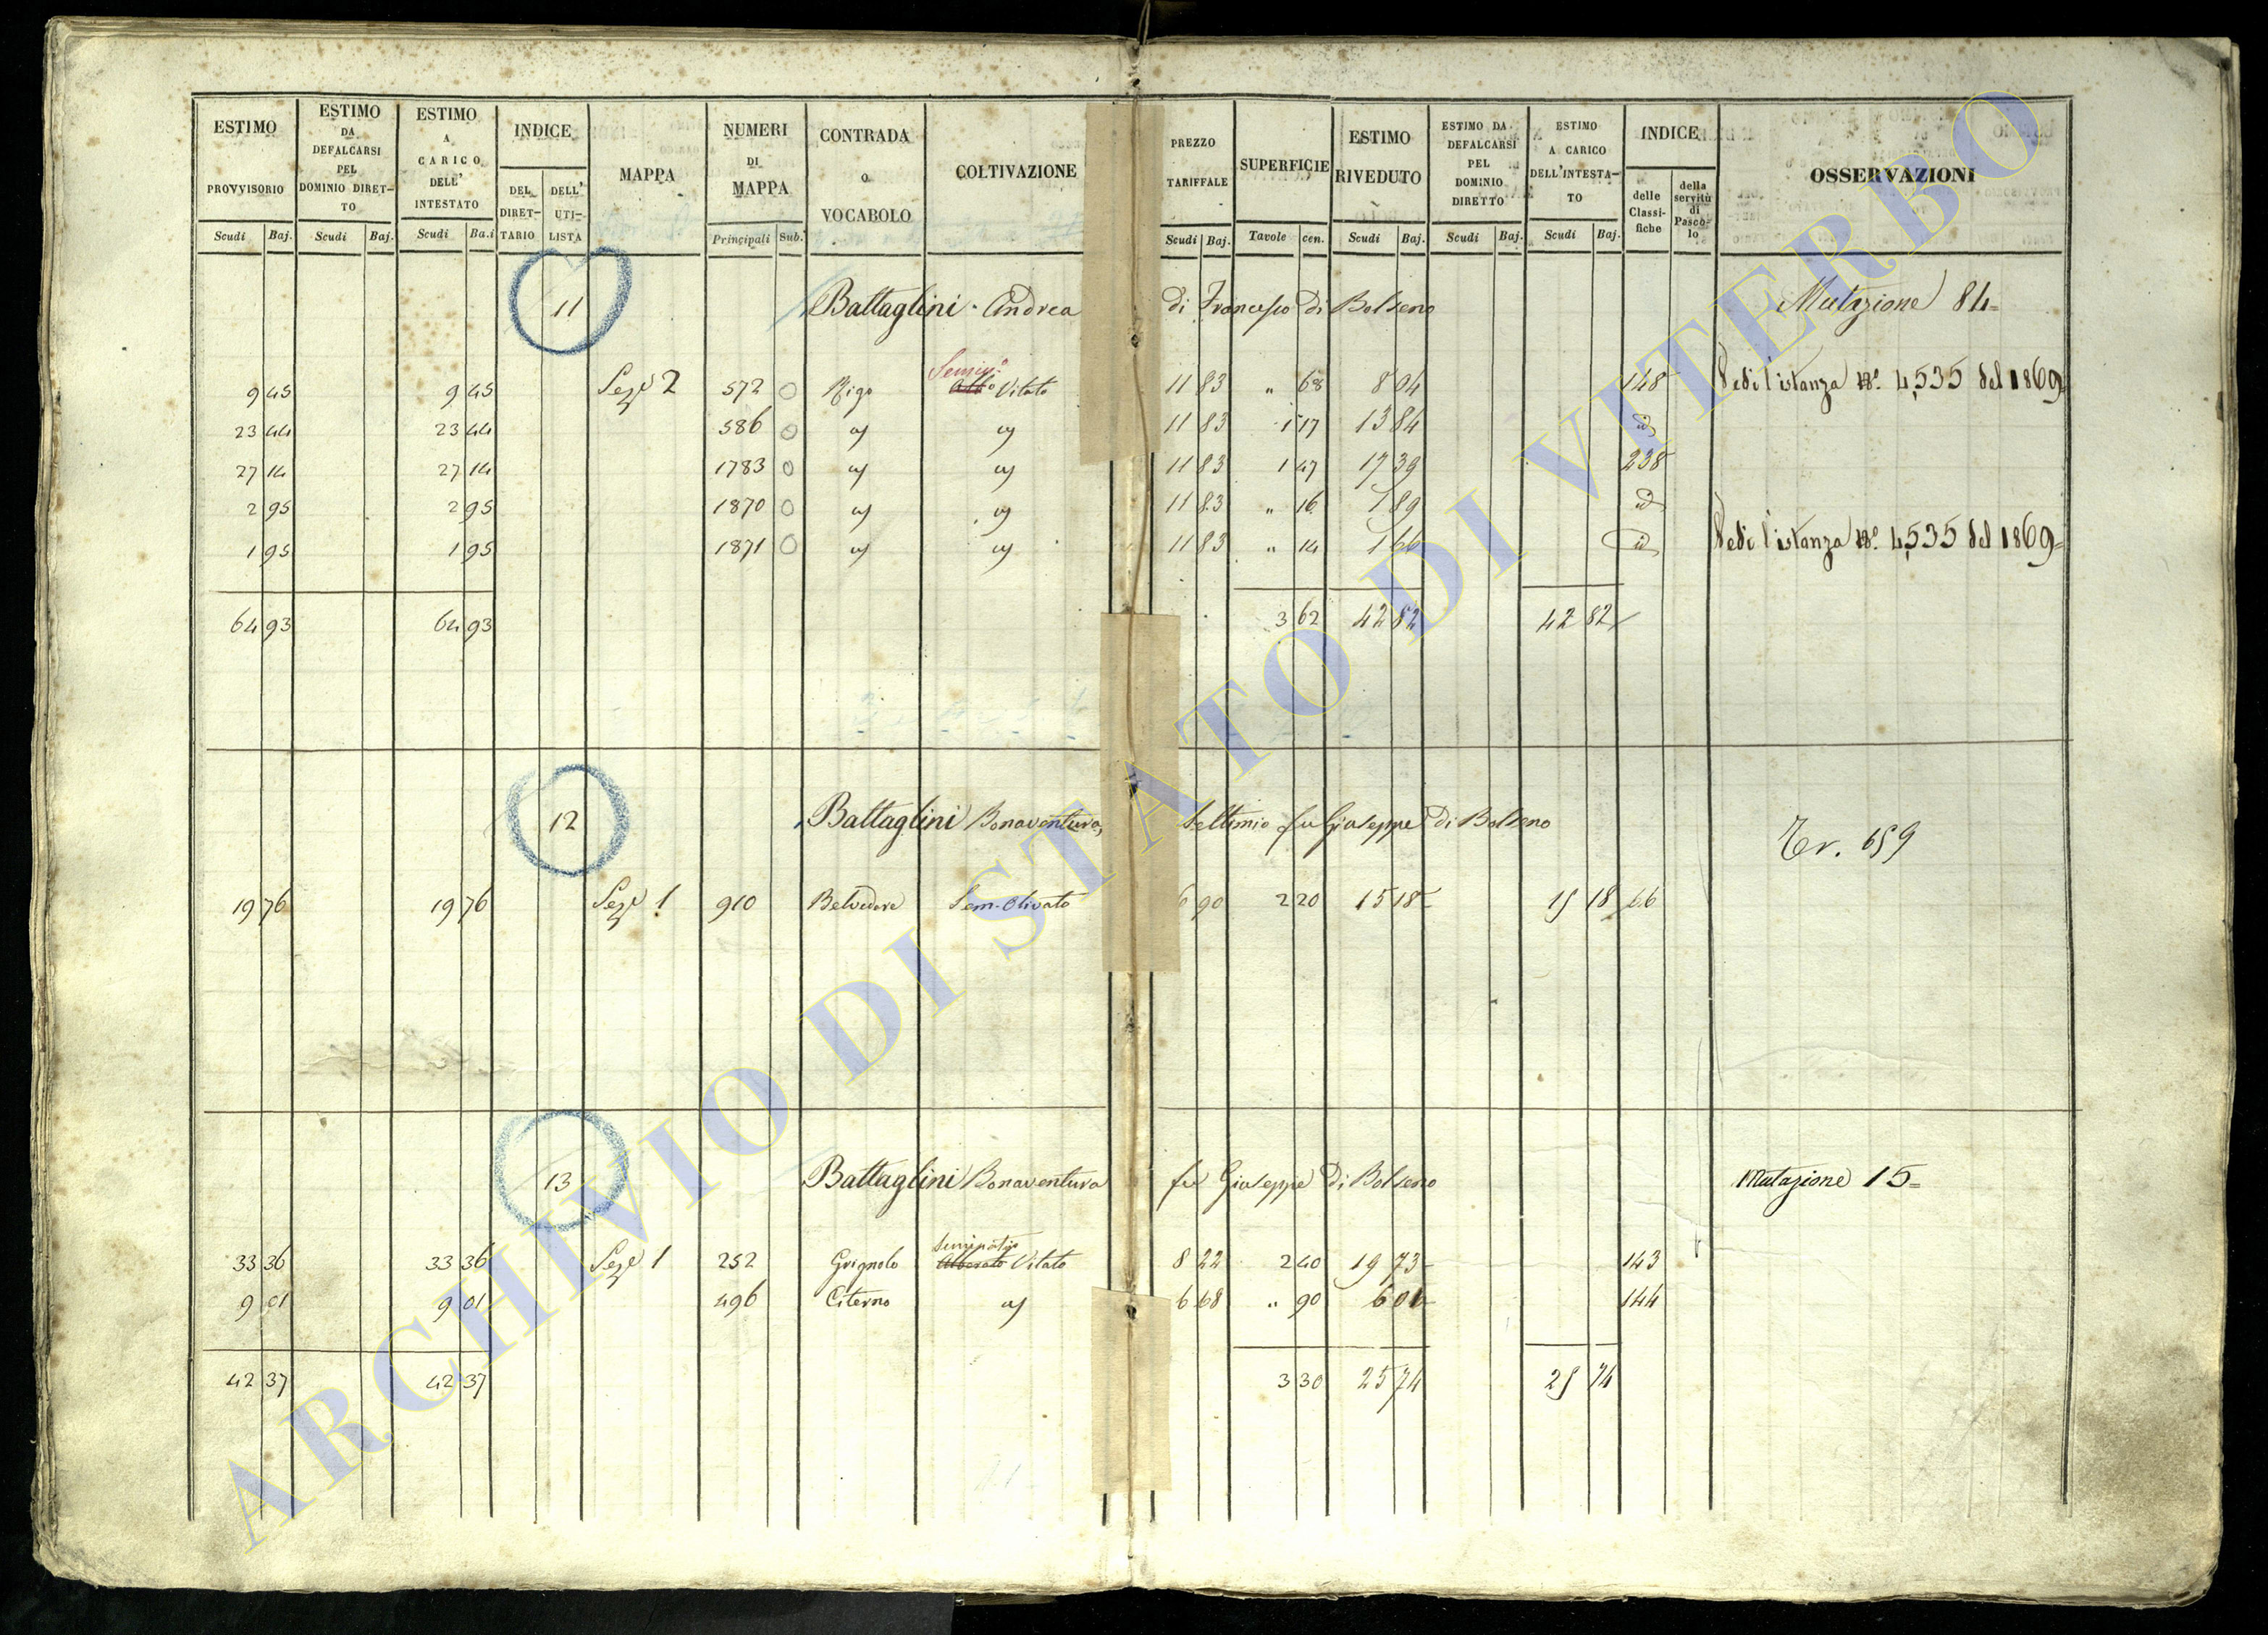 ESTIMO PROVVISORIO
Scudi Baj.
ESTIMO DA DEFALCARSI PEL DOMINIO DIRET-TO
Scudi Baj.
ESTIMO A CARICO DELL' INTESTATO
Scudi Ba.i
INDICE
DEL DIRET-TARIO
DELL' UTI-LISTA
MAPPA
NUMERI DI MAPPA
Principali Sub.
CONTRADA O VOCABOLO
COLTIVAZIONE
PREZZO TARIFFALE
Scudi Baj.
SUPERFICIE
Tavole cen.
ESTIMO RIVEDUTO
Scudi Baj.
ESTIMO DA DEFALCARSI PEL DOMINIO DIRETTO
Scudi Baj.
ESTIMO A CARICO DELL'INTESTA-TO
Scudi Baj.
INDICE
delle Classi-fiche
della servitù di Pasco-lo
OSSERVAZIONI
11 Battaglini Andrea di Francesco di Bolseno Mutazione 84=
9 45 9 45 Sez.e 2 572 0 Rigo Alb.o Vitato 11 83 " 68 8 04 148 Vedi l'istanza N.o 4535 del 1869=
23 44 23 44 586 0 id id 11 83 1 17 13 84 id
27 14 27 14 1783 0 id id 11 83 1 47 17 39 238
2 95 2 95 1870 0 id id 11 83 " 16 1 89 id
1 95 1 95 1871 0 id id 11 83 " 14 1 66 id Vedi l'istanza N.o 4535 del 1869=
64 93 64 93 3 62 42 82 42 82
12 Battaglini Bonaventura, Settimio fu Giuseppe di Bolseno Tr. 659
19 76 19 76 Sez.e 1 910 Belvedere Sem. Olivato 6 90 2 20 15 18 15 18 66
13 Battaglini Bonaventura fu Giuseppe di Bolseno Mutazione 15=
33 36 33 36 Sez.e 1 252 Grignolo Alberato Vitato 8 22 2 40 19 73 143
9 01 9 01 496 Citerno id 6 68 " 90 6 01 144
42 37 42 37 3 30 25 74 25 74
ARCHIVIO DI STATO DI VITERBO